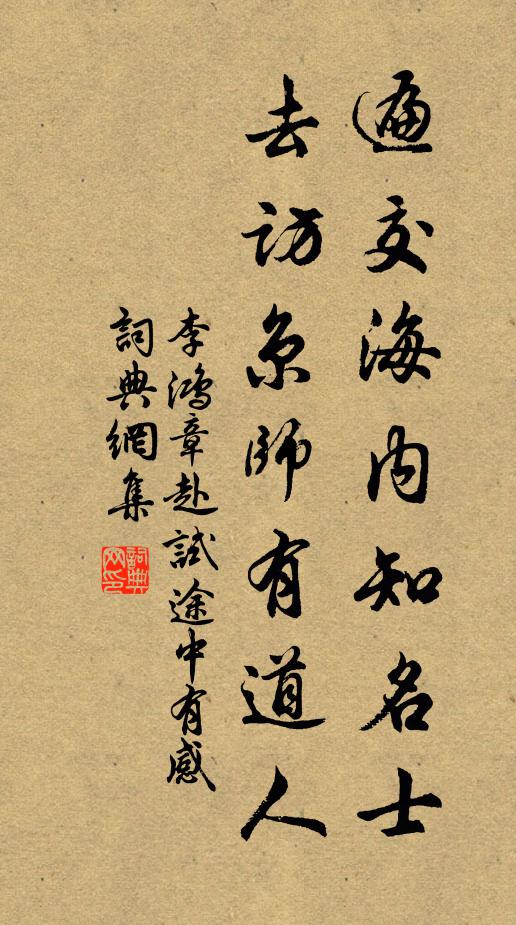 遍交海内知名士
去訪京師有道人
李鴻章赴試途中有感
詞典網集
詞典
网印